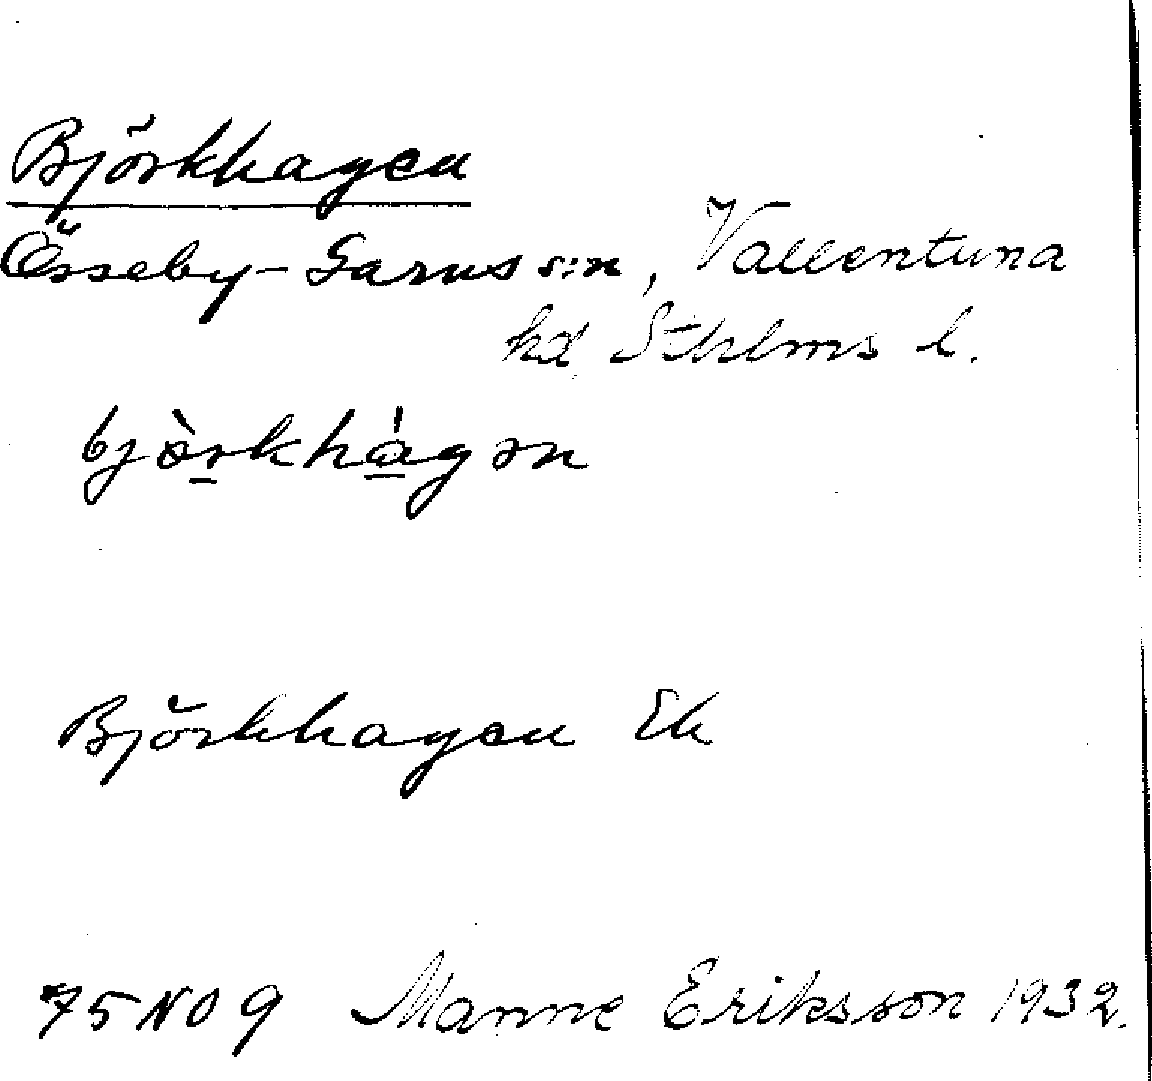 Björkhagen
Össeby-Garns sn, Vallentuna
hd Sthlms l.
bjö̀rkhàgən
Björkhagen Ek
75 NO 9 Manne Eriksson 1932.